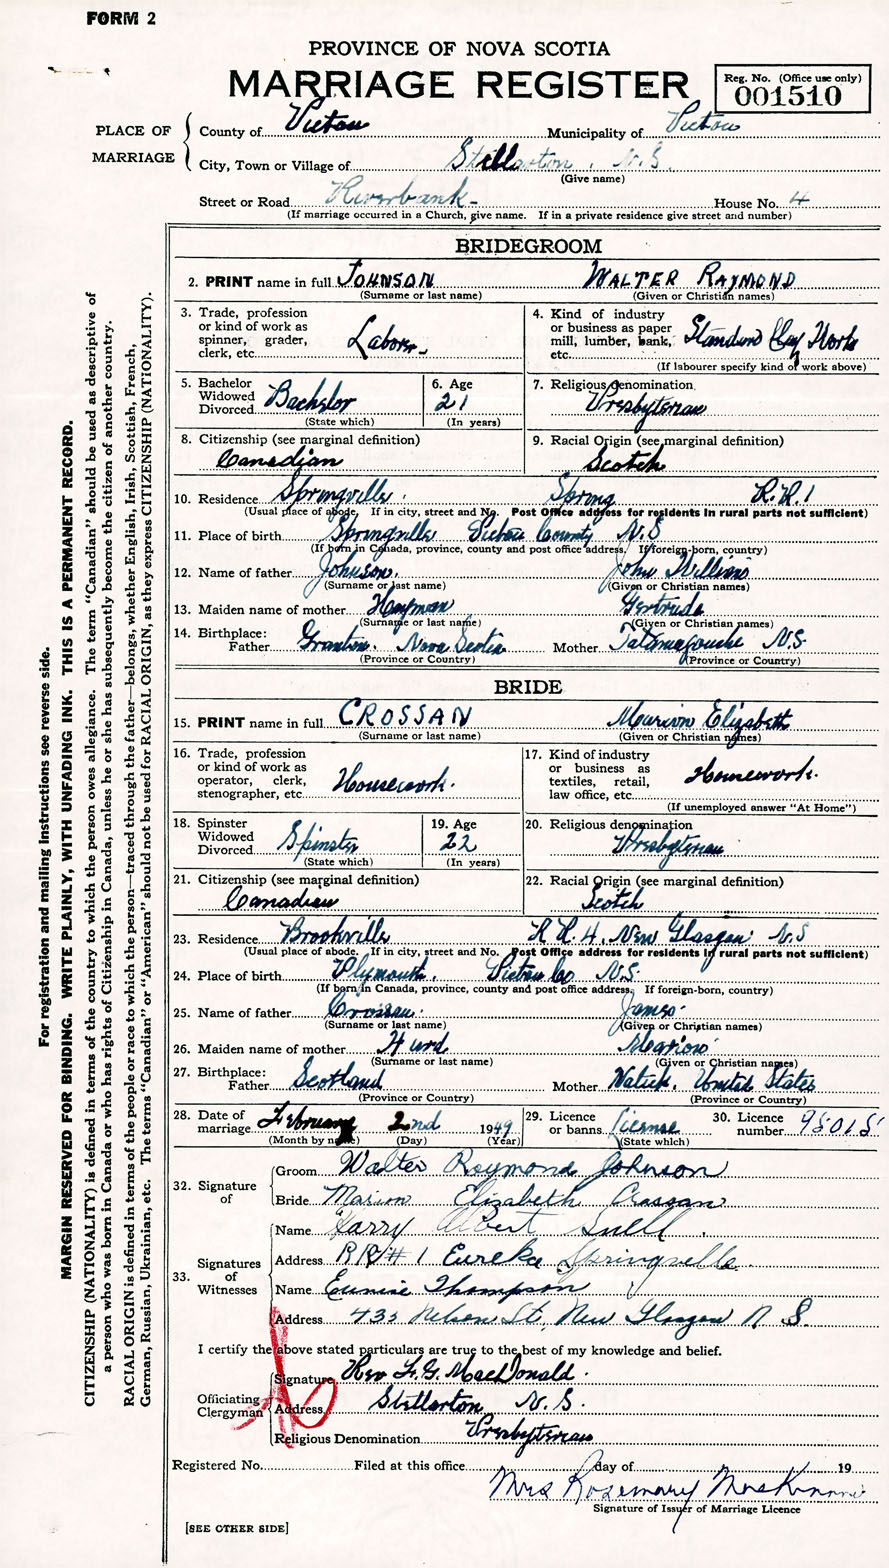 FORM 2
PROVINCE OF NOVA SCOTIA
MARRIAGE REGISTER
Reg. No. (Office use only)
001510
PLACE OF MARRIAGE
County of Pictou Municipality of Pictou
City, Town or Village of Stellarton, N.S.
(Give name)
Street or Road Riverbank House No. 4
(If marriage occurred in a Church, give name. If in a private residence give street and number)
BRIDEGROOM
2. PRINT name in full JOHNSON WALTER RAYMOND
(Surname or last name) (Given or Christian names)
3. Trade, profession or kind of work as spinner, grader, clerk, etc. Labor
4. Kind of industry or business as paper mill, lumber, bank, etc. Standard Clay Works
(If labourer specify kind of work above)
5. Bachelor Widowed Divorced Bachelor
(State which)
6. Age 21
(In years)
7. Religious denomination Presbyterian
8. Citizenship (see marginal definition)
Canadian
9. Racial Origin (see marginal definition)
Scotch
10. Residence Springville Spring R.R.1
(Usual place of abode. If in city, street and No. Post Office address for residents in rural parts not sufficient)
11. Place of birth Springville Pictou County N.S
(If born in Canada, province, county and post office address. If foreign-born, country)
12. Name of father Johnson John William
(Surname or last name) (Given or Christian names)
13. Maiden name of mother Hayman Gertrude
(Surname or last name) (Given or Christian names)
14. Birthplace:
Father Granton, Nova Scotia Mother Tatamagouche N.S.
(Province or Country) (Province or Country)
BRIDE
15. PRINT name in full CROSSAN Marion Elizabeth
(Surname or last name) (Given or Christian names)
16. Trade, profession or kind of work as operator, clerk, stenographer, etc. Housework.
17. Kind of industry or business as textiles, retail, law office, etc. Homework.
(If unemployed answer "At Home")
18. Spinster Widowed Divorced Spinster
(State which)
19. Age 22
(In years)
20. Religious denomination
Presbyterian
21. Citizenship (see marginal definition)
Canadian
22. Racial Origin (see marginal definition)
Scotch
23. Residence Brookville R R.4. New Glasgow N.S
(Usual place of abode. If in city, street and No. Post Office address for residents in rural parts not sufficient)
24. Place of birth Plymouth, Pictou Co N.S.
(If born in Canada, province, county and post office address. If foreign-born, country)
25. Name of father Crossan James
(Surname or last name) (Given or Christian names)
26. Maiden name of mother Hurd Marion
(Surname or last name) (Given or Christian names)
27. Birthplace:
Father Scotland Mother Natick, United States
(Province or Country) (Province or Country)
28. Date of marriage February 2nd 1949
(Month by name) (Day) (Year)
29. Licence or banns License
(State which)
30. Licence number 98015
32. Signature of
Groom Walter Raymond Johnson
Bride Marion Elizabeth Crossan
33. Signatures of Witnesses
Name Harry Albert Snell
Address R R # 1 Eureka Springville
Name Eunice Thompson
Address 435 Nelson St, New Glasgow N.S.
I certify the above stated particulars are true to the best of my knowledge and belief.
Officiating Clergyman
Signature Rev F. G. MacDonald.
Address Stellarton, N.S.
Religious Denomination Presbyterian
Registered No. Filed at this office day of 19
Mrs Rosemary MacKinnon
Signature of Issuer of Marriage Licence
[SEE OTHER SIDE]
For registration and mailing instructions see reverse side.
MARGIN RESERVED FOR BINDING. WRITE PLAINLY, WITH UNFADING INK. THIS IS A PERMANENT RECORD.
CITIZENSHIP (NATIONALITY) is defined in terms of the country to which the person owes allegiance. The term "Canadian" should be used as descriptive of
a person who was born in Canada or who has rights of Citizenship in Canada, unless he or she has subsequently become the citizen of another country.
RACIAL ORIGIN is defined in terms of the people or race to which the person—traced through the father—belongs, whether English, Irish, Scottish, French,
German, Russian, Ukrainian, etc. The terms "Canadian" or "American" should not be used for RACIAL ORIGIN, as they express CITIZENSHIP (NATIONALITY).